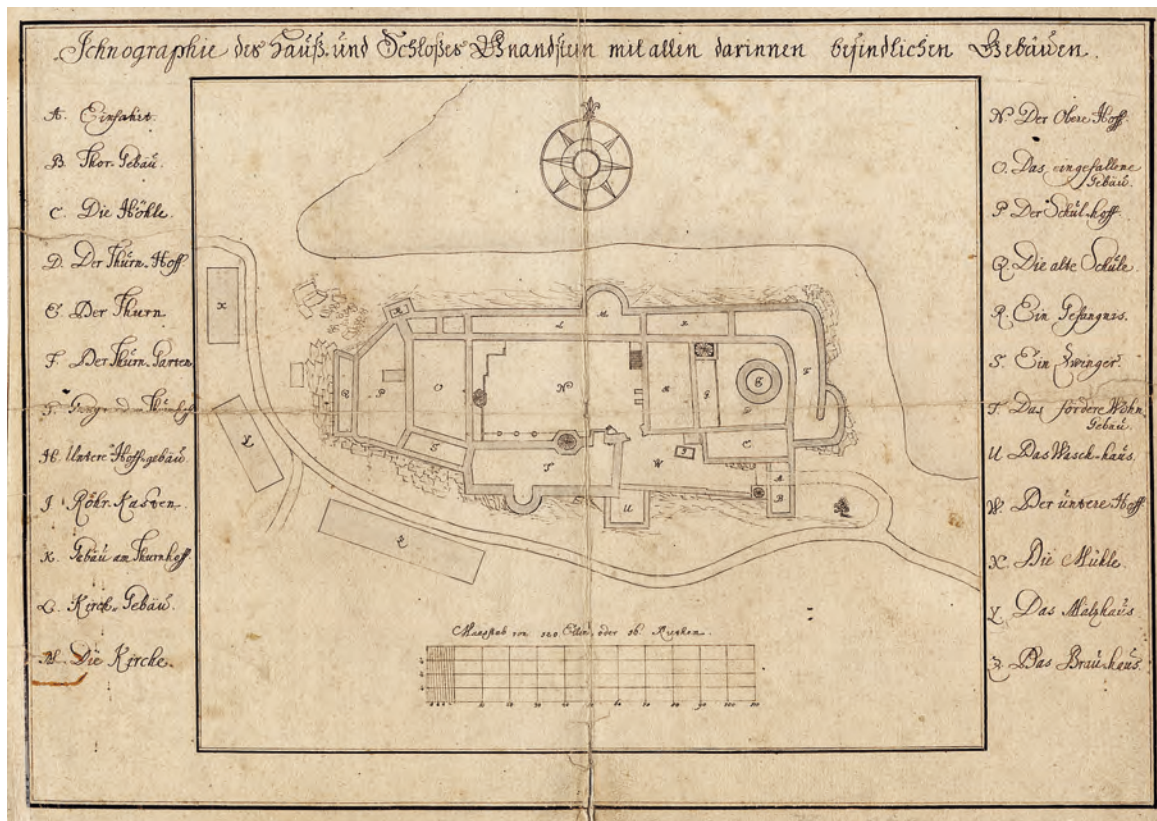 Ichnographie des Hauß und Schloßes Gnandstein mit allen darinnen befindlichen Gebäuen.
A. Einfahrt.
B. Thor-Gebäu.
C. Die Höhle.
D. Der Thurn-Hoff
E. Der Thurn
F. Der Thurn-Garten
G.
H. Untere Hoff-gebäu.
I Röhr-Kasten.
K. Gebäu am Thurnhoff
L. Kirch-Gebäu.
M. Die Kirche.
N. Der Obere Hoff.
O. Das eingefallene
Gebäu.
P Der Schul-hoff.
Q. Die alte Schule.
R. Ein Gefängnis.
S. Ein Zwinger.
T. Das fördere Wohn-
Gebäu.
U Das Wasch-haus.
W. Der untere Hoff
X. Die Mühle.
Y. Das Malzhaus
Z. Das Brau-haus.
Maasstab von 120. Ellen, oder 16. Ruthen.
10 20 30 40 50 60 70 80 90 100 110